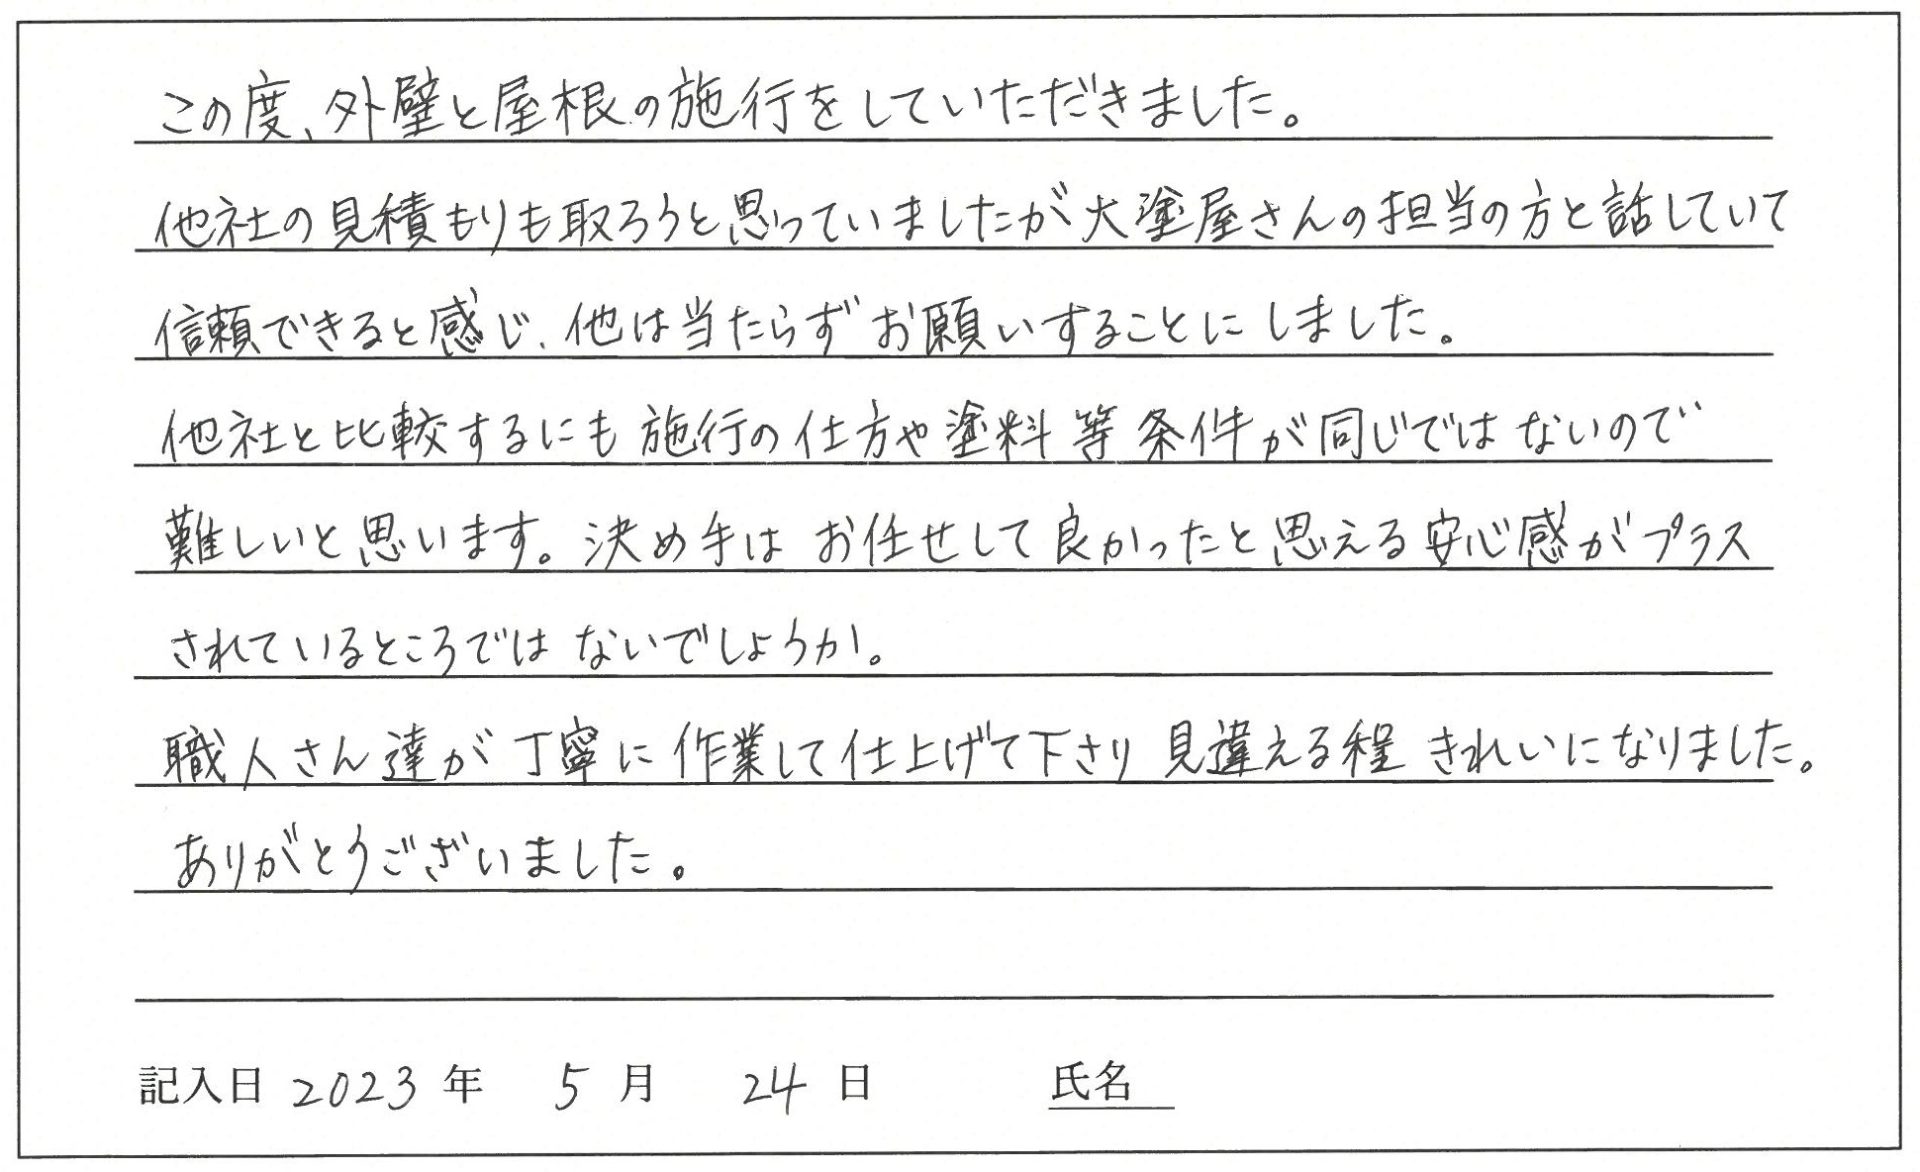 この度、外壁と屋根の施行をしていただきました。
他社の見積もりも取ろうと思っていましたが大塗屋さんの担当の方と話していて
信頼できると感じ、他は当たらずお願いすることにしました。
他社と比較するにも施行の仕方や塗料等条件が同じではないので
難しいと思います。決め手はお任せして良かったと思える安心感がプラス
されているところではないでしょうか。
職人さん達が丁寧に作業して仕上げて下さり見違える程きれいになりました。
ありがとうございました。
記入日 2023 年 5 月 24 日 氏名